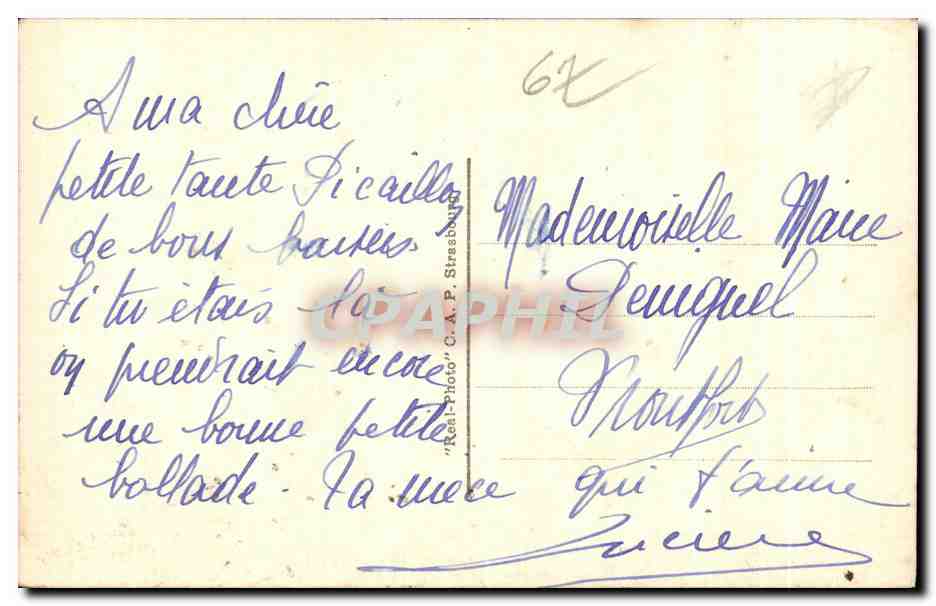 67
A ma chère
petite tante Picaillon
de bons baisers.
Si tu étais là
on prendrait encore
une bonne petite
ballade - Ta nièce qui t'aime
Lucienne
"Real-Photo" C. A. P. Strasbourg
Mademoiselle Marie
Deniguel
Montfort
CPAPHIL